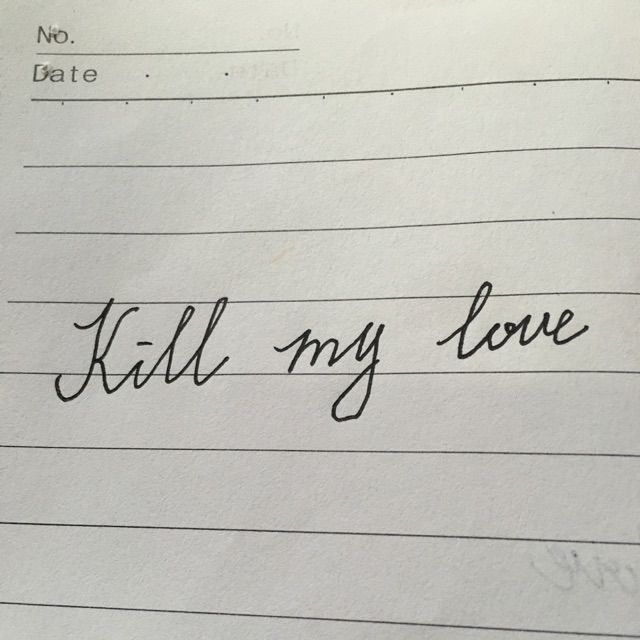 No.
Date
Kill my love